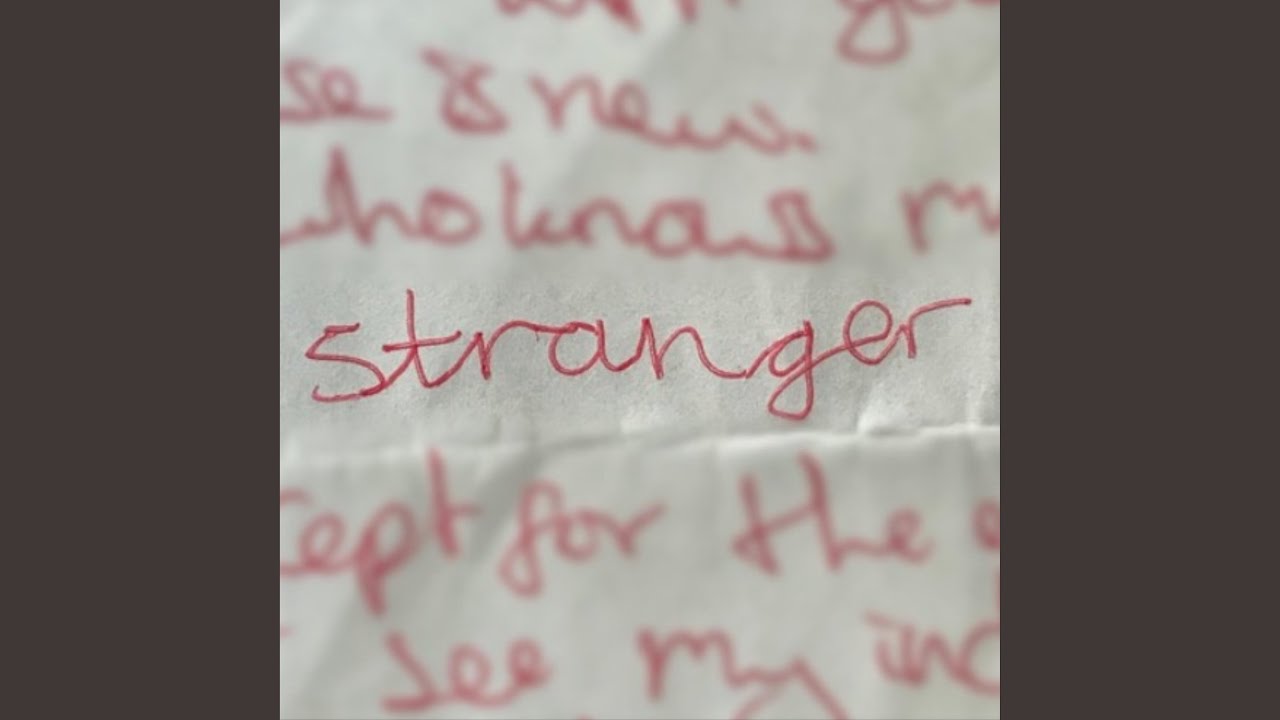 se is new.
who knows m
stranger
cept for the e
I see my inc